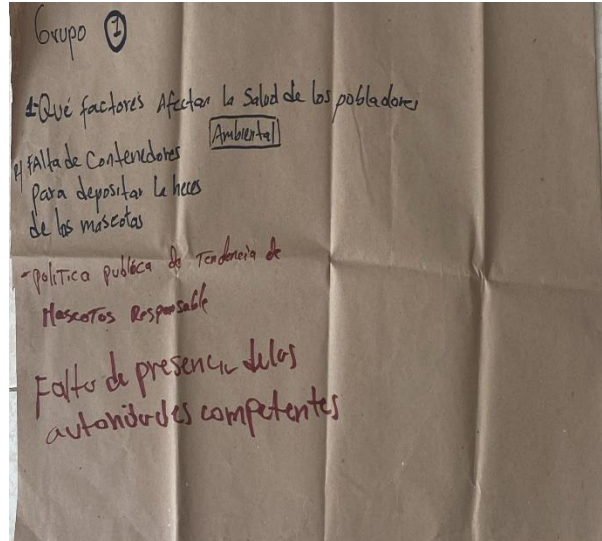 Grupo 1
1- Qué factores Afectan la Salud de los pobladores
Ambiental
R/ FAlta de Contenedores
para depositar la heces
de las mascotas
- Politica publica de Tendencia de
Mascotas Responsable
Falta de presencia de las
autoridades competentes